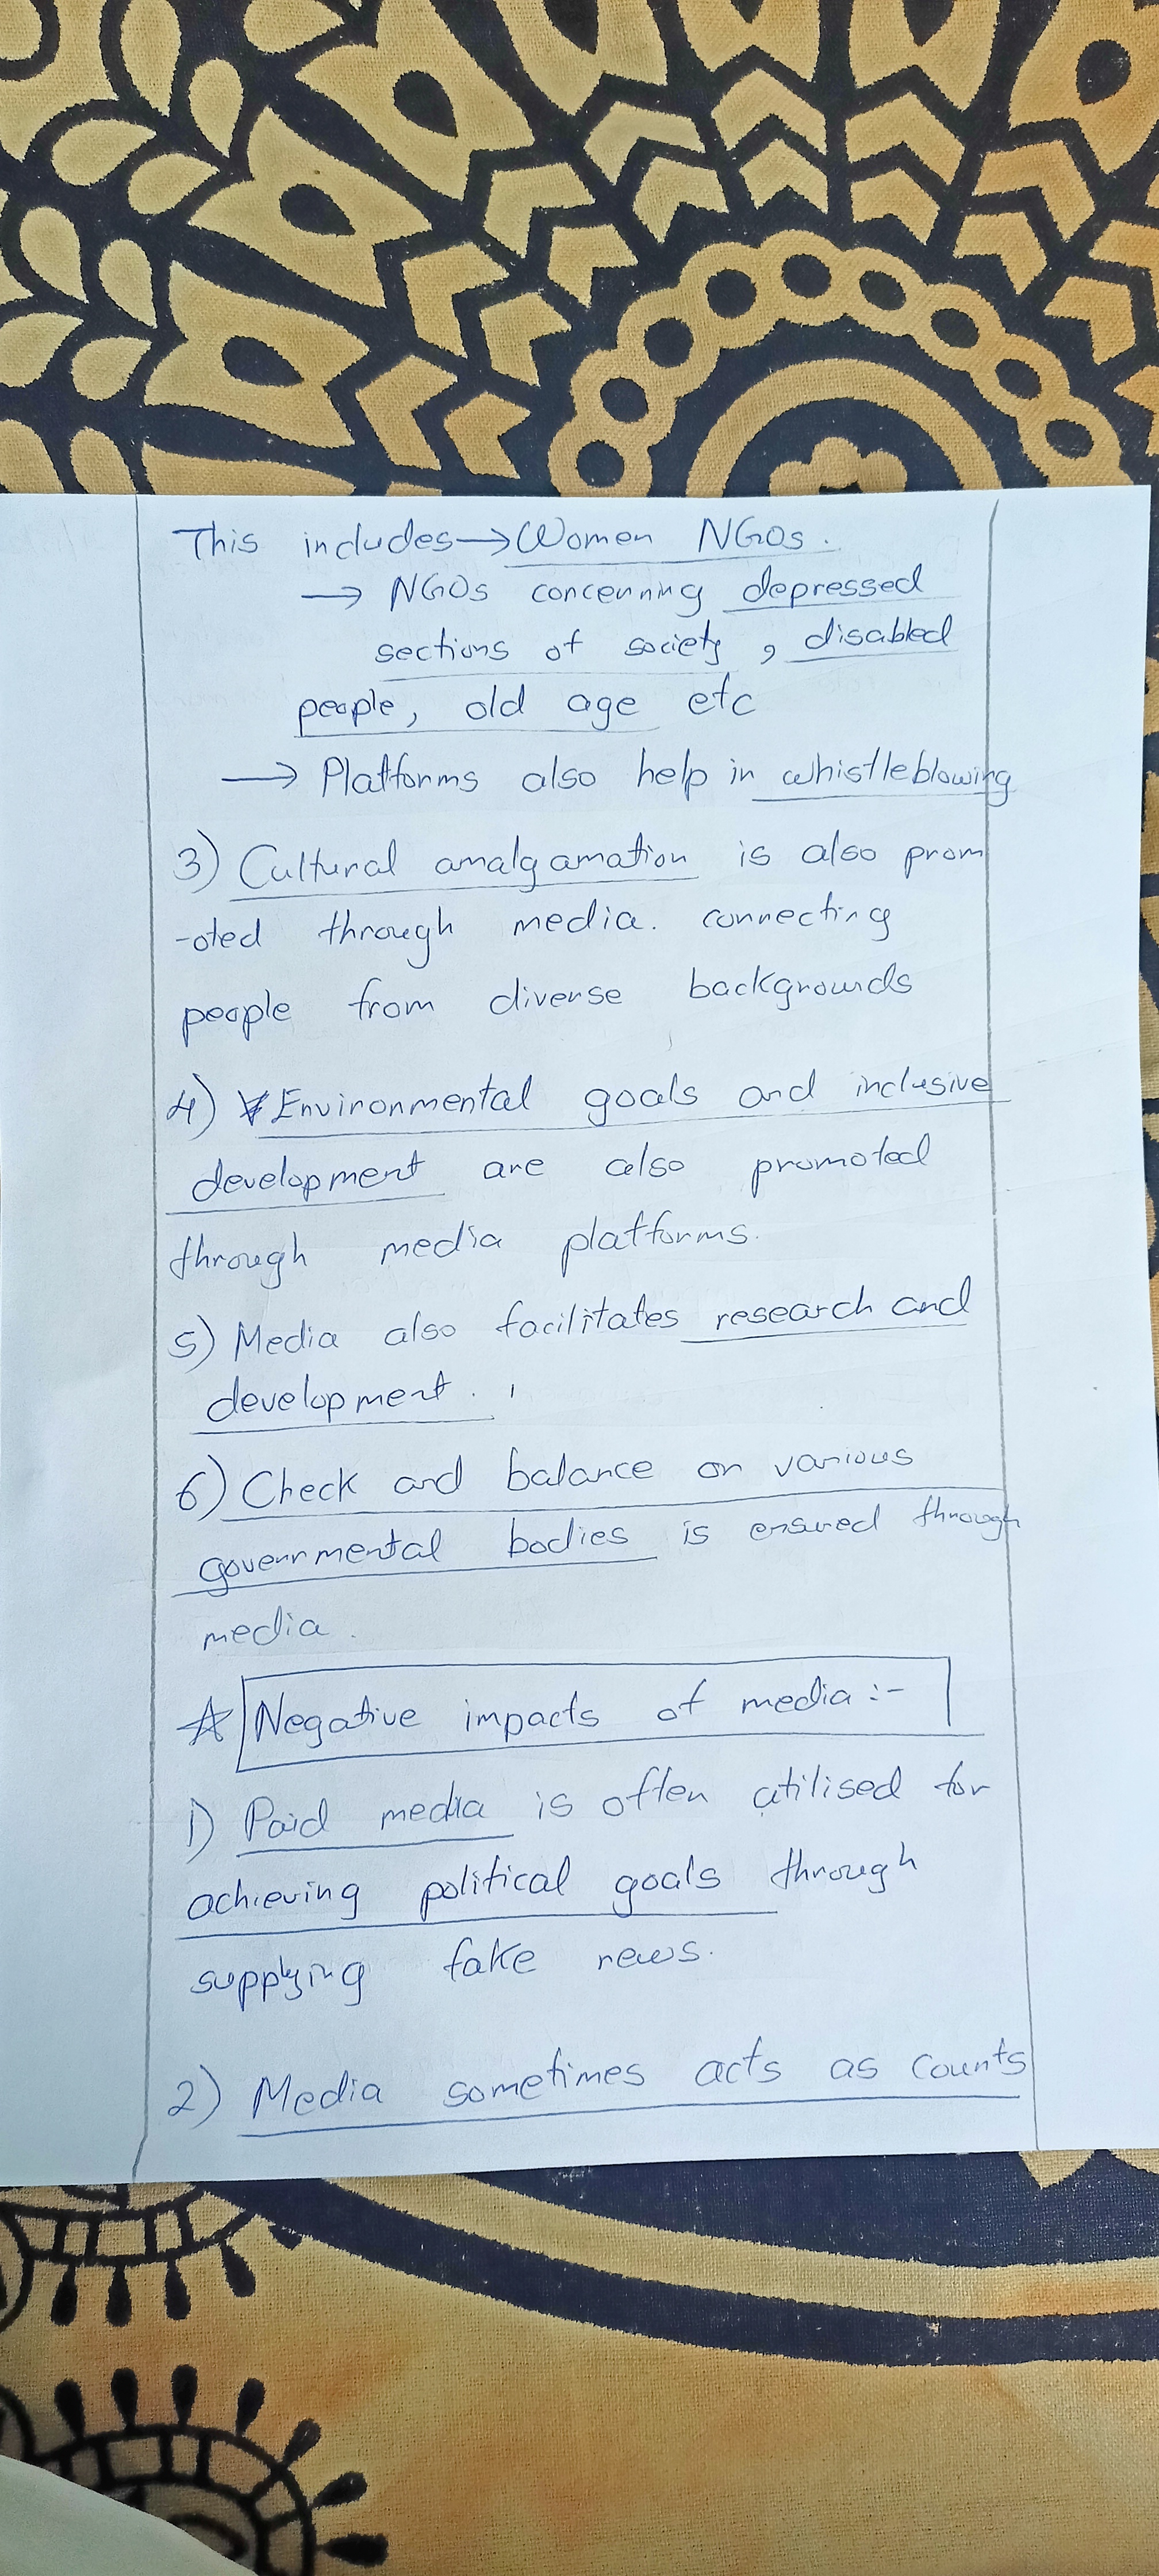 This includes → Women NGOs.
→ NGOs concerning depressed
sections of society, disabled
people, old age etc
→ Platforms also help in whistleblowing
3) Cultural amalgamation is also prom
-oted through media. connecting
people from diverse backgrounds
4) Environmental goals and inclusive
development are also promoted
through media platforms.
5) Media also facilitates research and
development.
6) Check and balance on various
governmental bodies is ensured through
media.
☆ Negative impacts of media :-
1) Paid media is often utilised for
achieving political goals through
supplying fake news.
2) Media sometimes acts as counts